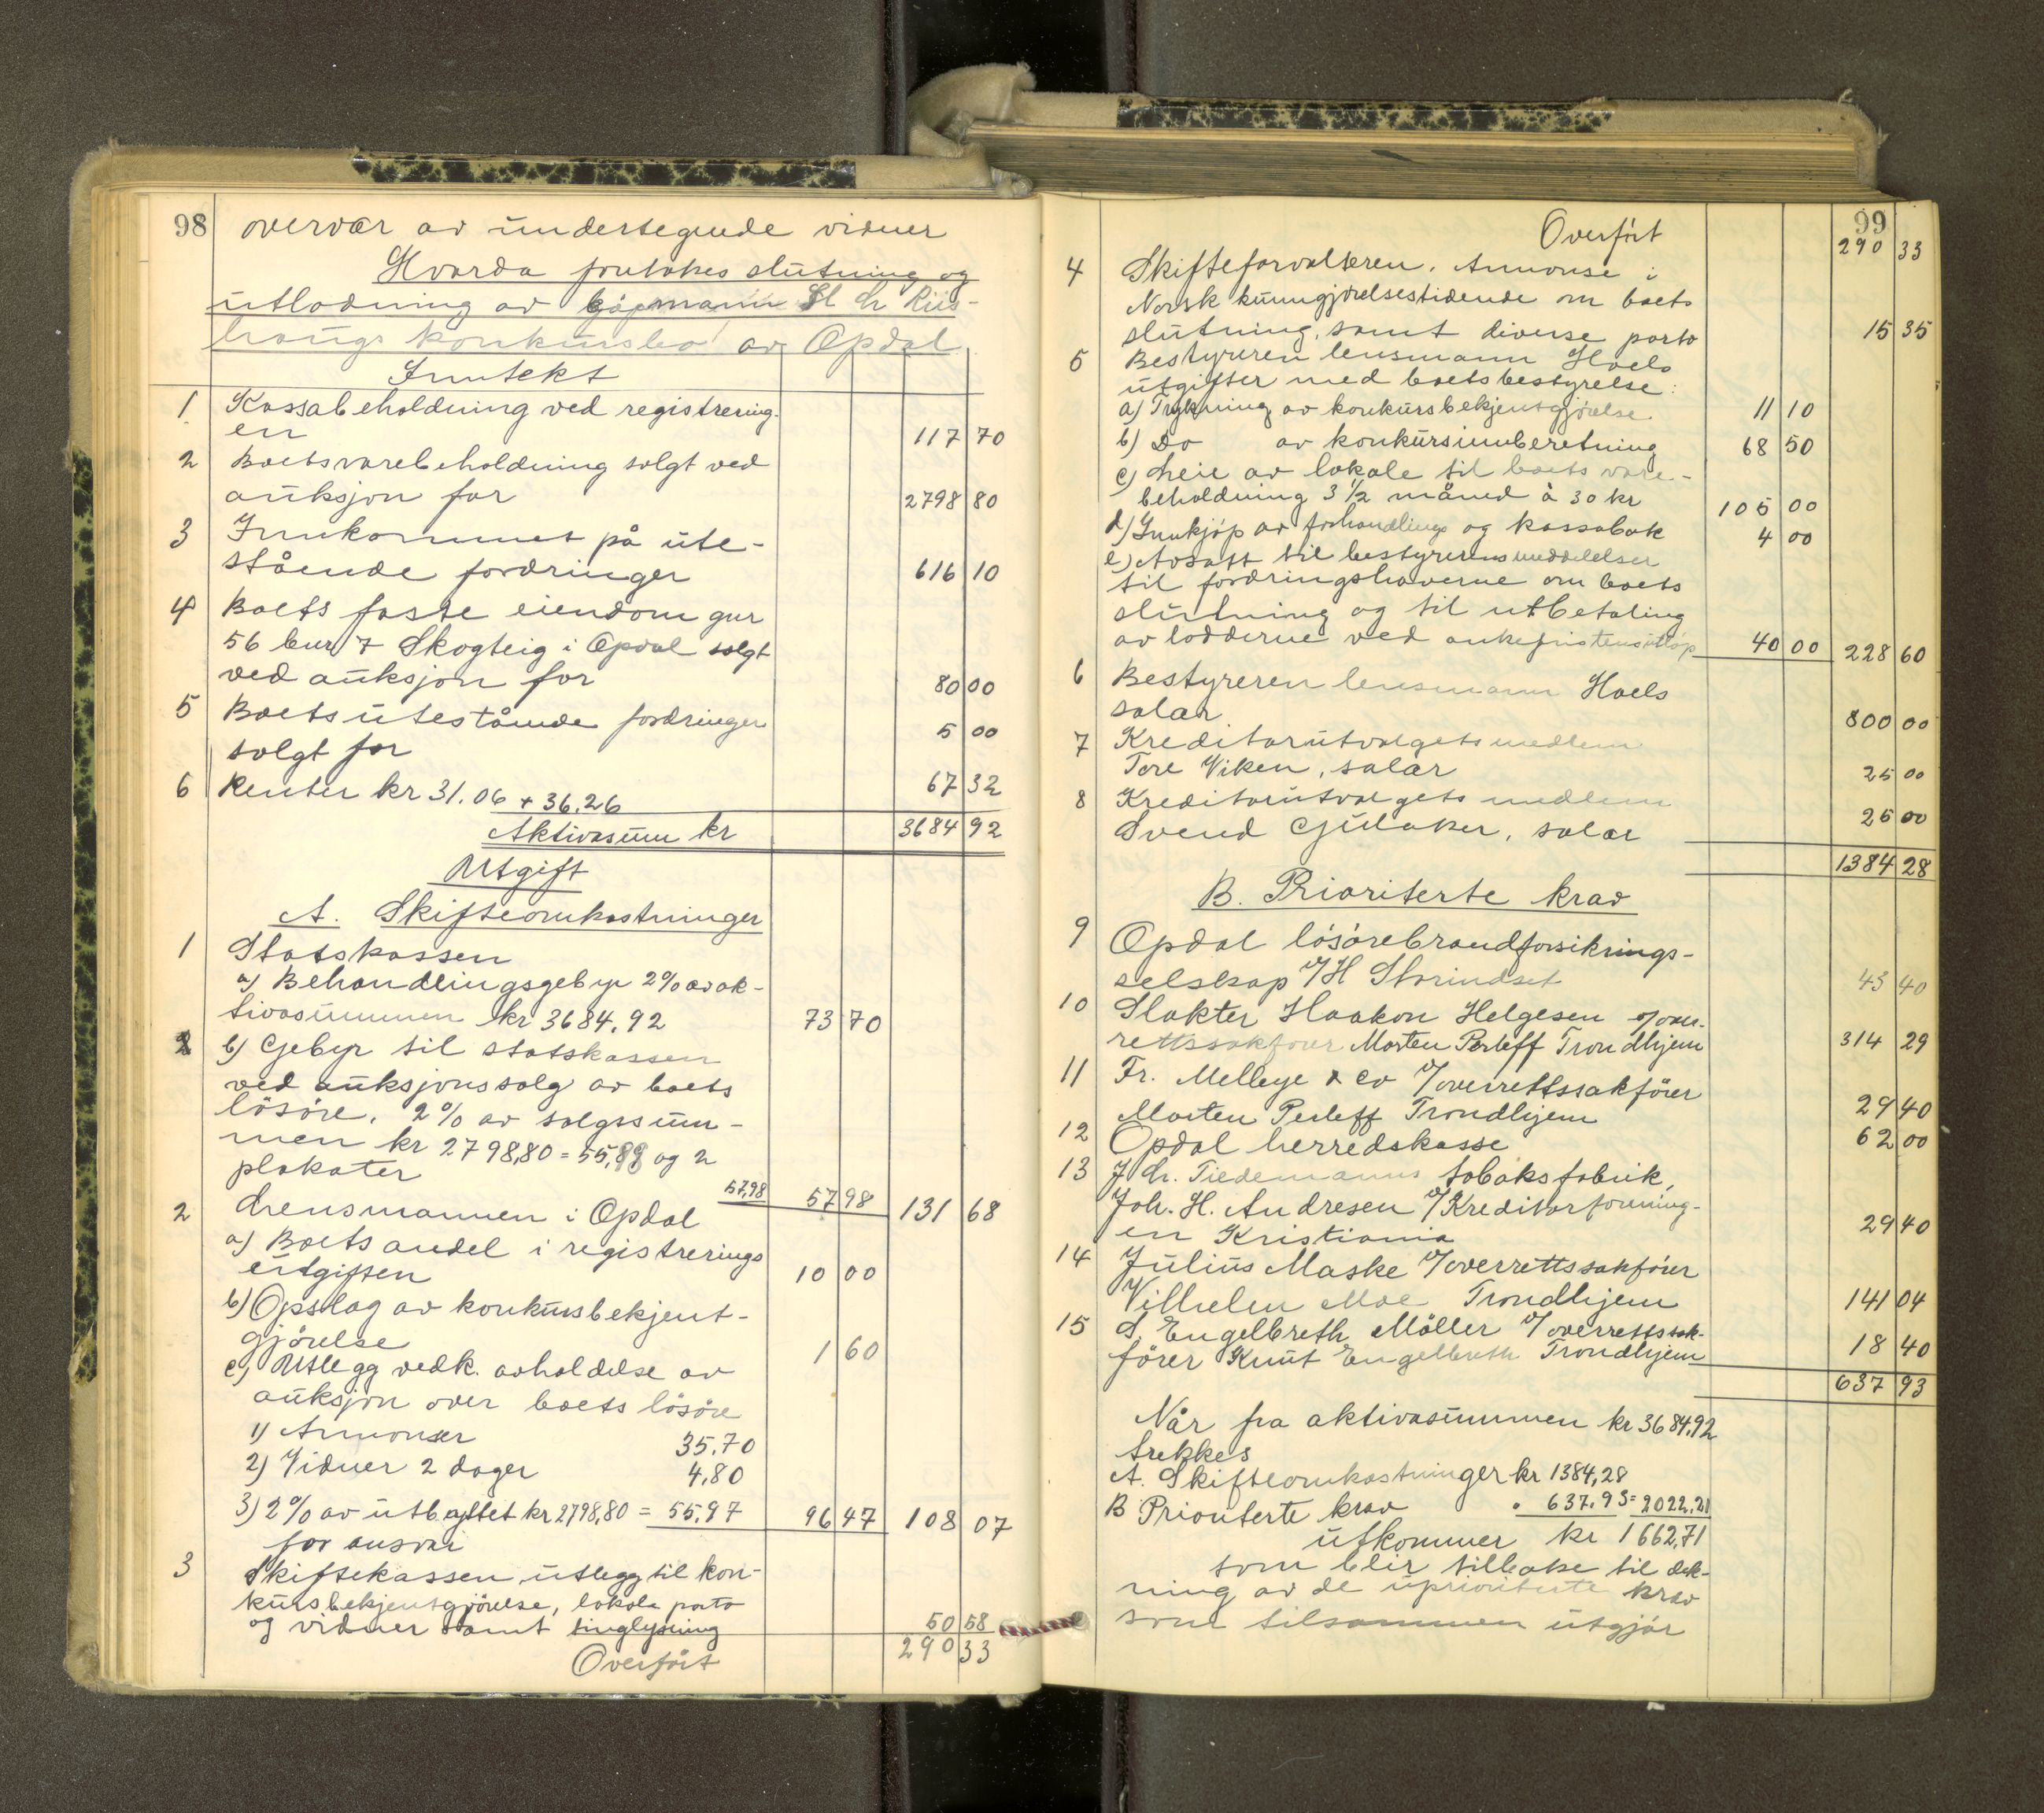 98
overvær av undertegnede vidner
Hvorda foretokes slutning og
utlodning av kjøpmann Sl Chr Riis-
haugs konkursbo av Opdal
Inntekt
1 Kassabeholdning ved registrering-
en 117 70
2 Boets varebeholdning solgt ved
auksjon for 2798 80
3 Innkommet på ute-
stående fordringer 616 10
4 Boets faste eiendom gnr
56 bnr 7 Skogteig i Opdal solgt
ved auksjon for 80 00
5 Boets utestående fordringer
solgt for 5 00
6 Renter kr 31.06 + 36.26 67 32
Aktivasum kr 3684 92
Utgift
A. Skifteomkostninger
1 Statskassen
a) Behandlingsgebyr 2% av ak-
tivasummen kr 3684,92 73 70
b) Gebyr til statskassen
ved auksjonssalg av boets
løsøre, 2% av salgssum-
men kr 2798,80 = 55,98 og 2
plakater 57,98 57 98 131 68
2 Lensmannen i Opdal
a) Boets andel i registrerings
utgiften 10 00
b) Opslag av konkursbekjent-
gjørelse 1 60
c) Utlegg vedk. avholdelse av
auksjon over boets løsøre
1) Annonser 35,70
2) Vidner 2 dager 4,80
3) 2% av utbyttet kr 2798,80 = 55,97 96 47 108 07
for ansvar
3 Skiftekassen utlegg til kon-
kursbekjentgjørelse, lokale porto
og vidner samt tinglysning 50 58
Overført 290 33
99
Overført 290 33
4 Skifteforvalteren. Annonse i
Norsk kunngjørelsestidende om boets
slutning, samt diverse porto 15 35
5 Bestyreren lensmann Hoels
utgifter med boets bestyrelse:
a) Trykning av konkursbekjentgjørelse 11 10
b) Do av konkursinnberetning 68 50
c) Leie av lokale til boets vare-
beholdning 3 1/2 måned à 30 kr 105 00
d) Innkjøp av forhandlings og kassabok 4 00
e) Avsatt til bestyrerens meddelelser
til fordringshaverne om boets
slutning og til utbetaling
av lodderne ved ankefristens utløp 40 00 228 60
6 Bestyreren lensmann Hoels
salær 800 00
7 Kreditorutvalgets medlem
Tore Viken, salær 25 00
8 Kreditorutvalgets medlem
Svend Gulaker, salær 25 00
1384 28
B. Prioriterte krav
9 Opdal løsørebrandforsikrings-
selskap v/ H Storindset 43 40
10 Slakter Haakon Helgesen v/ over-
rettssakfører Morten Perleff Trondhjem 314 29
11 Fr. Melleye & Co v/ overrettssakfører
Morten Perleff Trondhjem 29 40
12 Opdal herredskasse 62 00
13 J. Chr. Tiedemanns tobaksfabrik,
Joh. H. Andresen v/ Kreditorforening-
en Kristiania 29 40
14 Julius Maske v/ overrettssakfører
Vilhelm Moe Trondhjem 141 04
15 S. Engelbreth Möller v/ overrettssak-
fører Knut Engelbreth Trondhjem 18 40
637 93
Når fra aktivasummen kr 3684,92
trekkes
A. Skifteomkostninger kr 1384,28
B Prioriterte krav " 637,93 = 2022,21
utkommer kr 1662,71
som blir tilbake til dek-
ning av de uprioriterte krav
som tilsammen utgjør